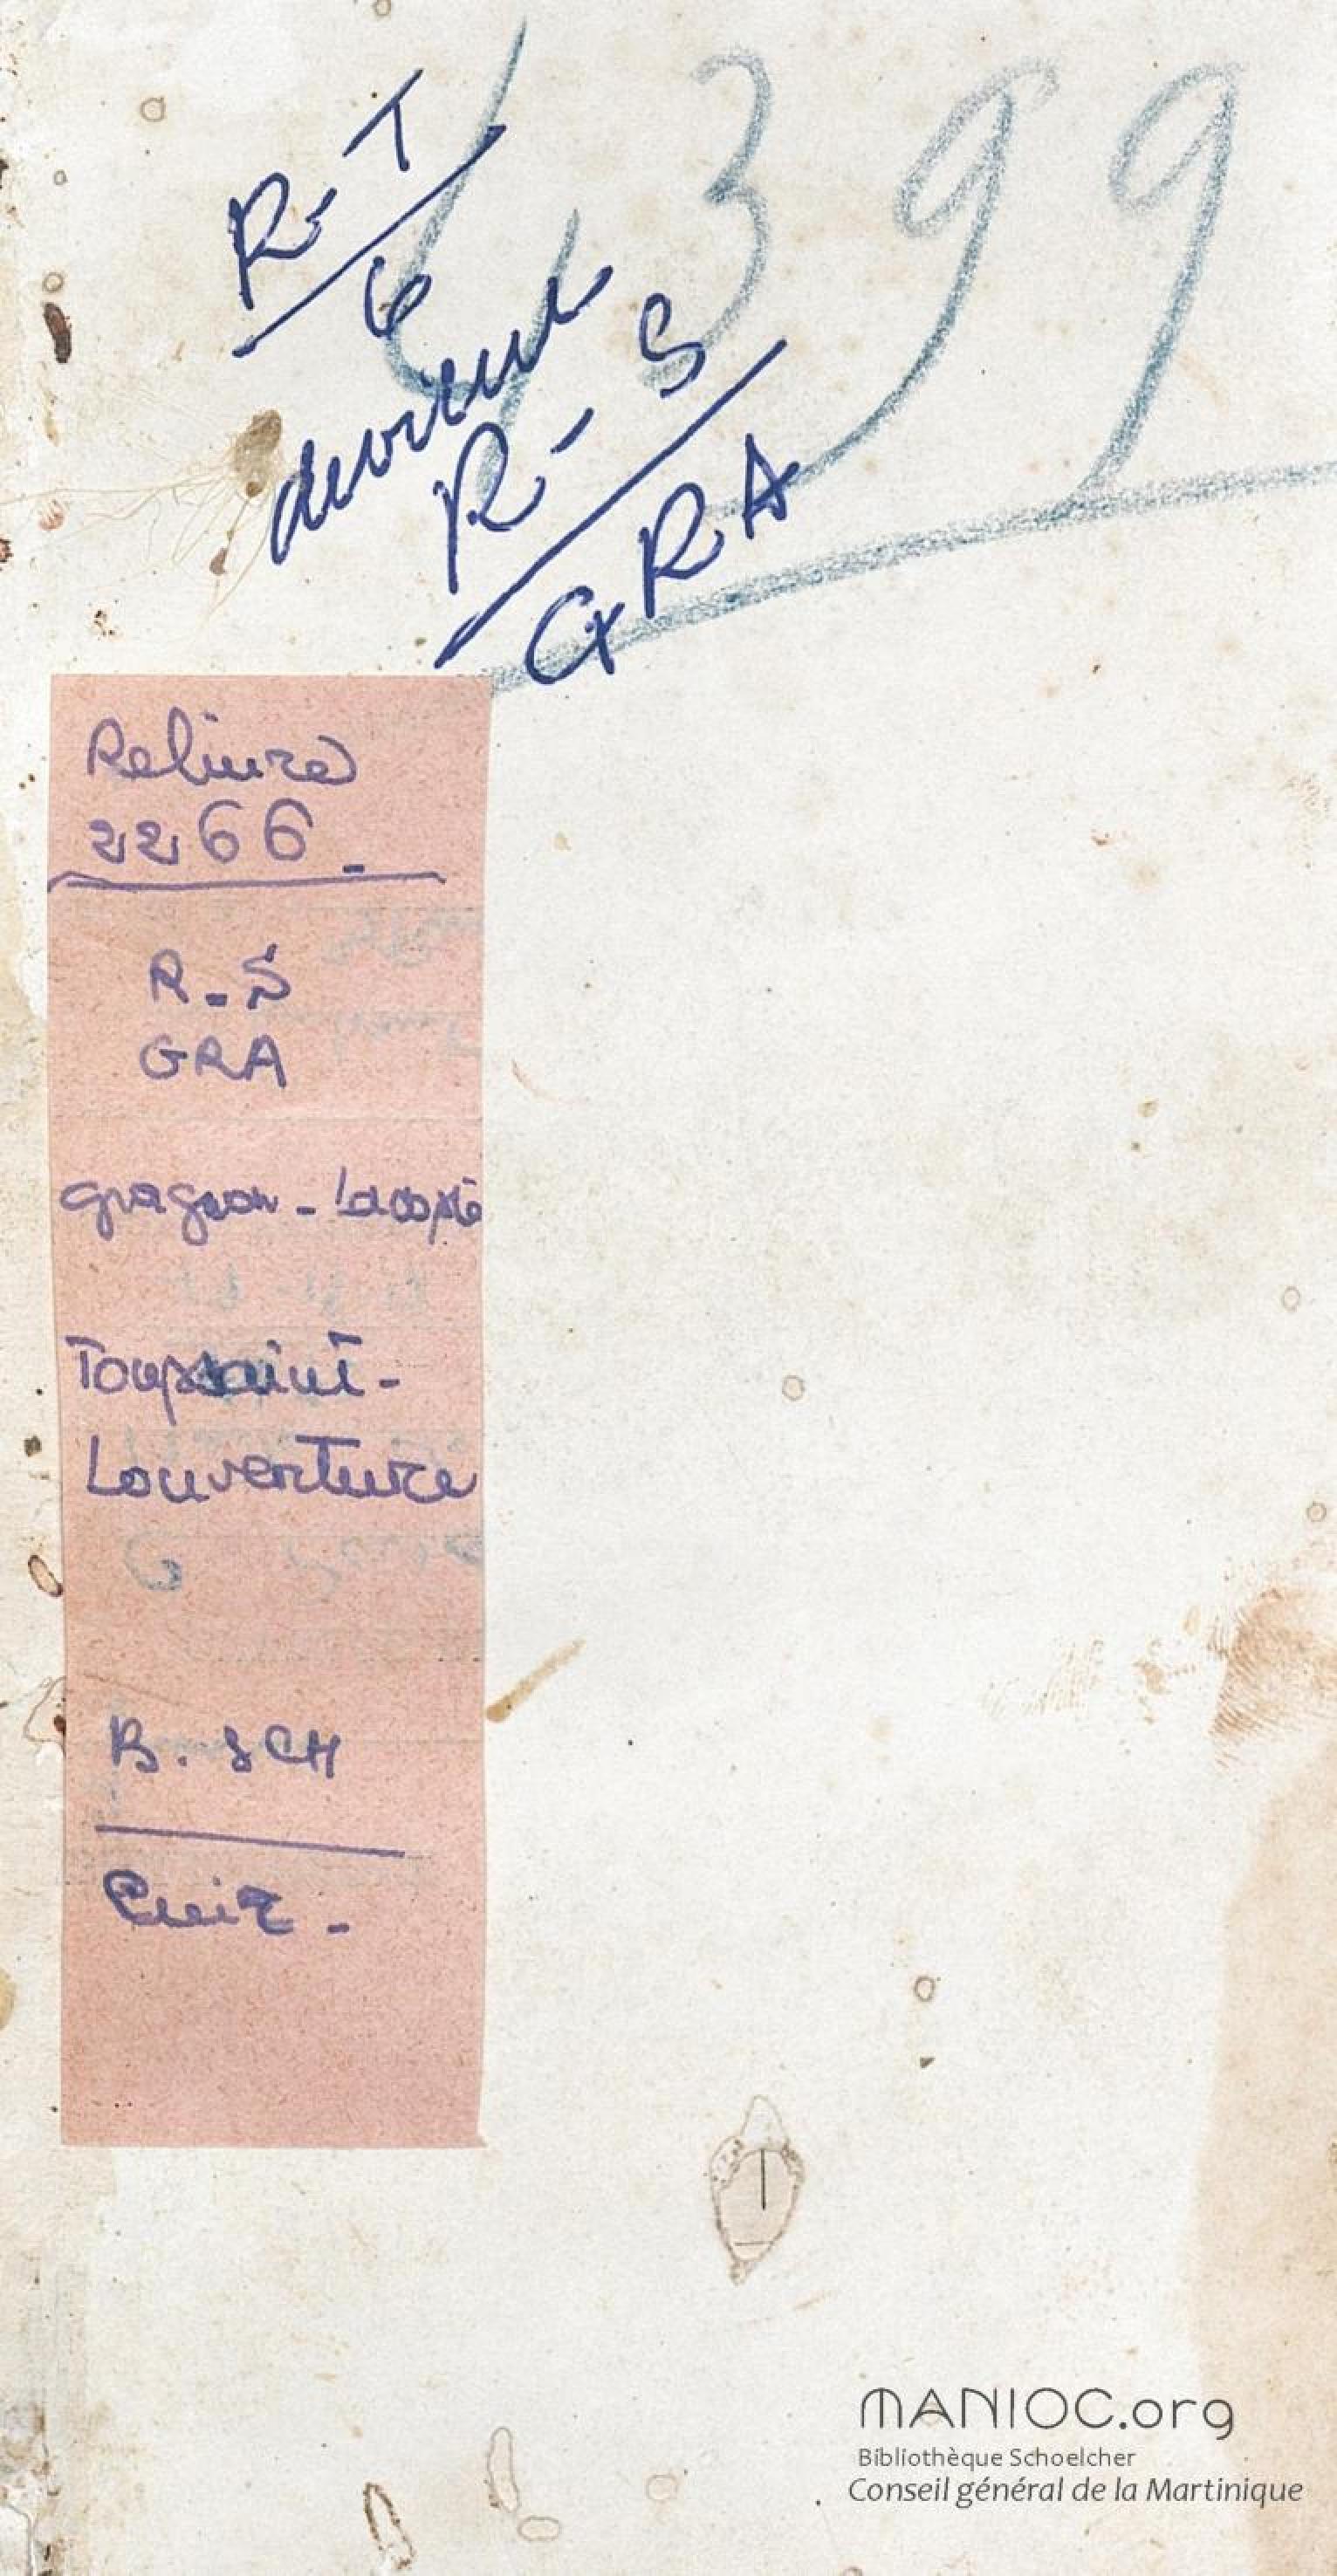 4399
R-T
6
devient
R-S
GRA
Reliure
2266-
R-S
GRA
gragnon-lacoste
Toussaint-
Louverture
B. SCH
Cuir-
MANIOC.org
Bibliothèque Schoelcher
Conseil général de la Martinique